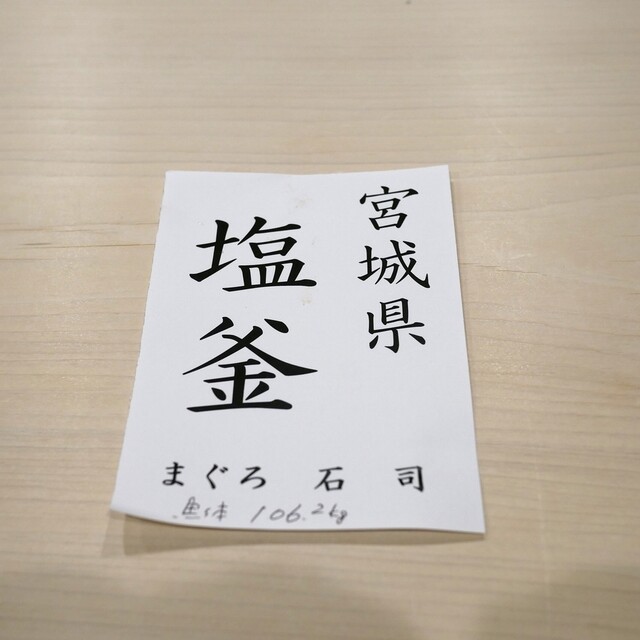 宮城県
塩釜
まぐろ 石 司
魚体 106.2kg